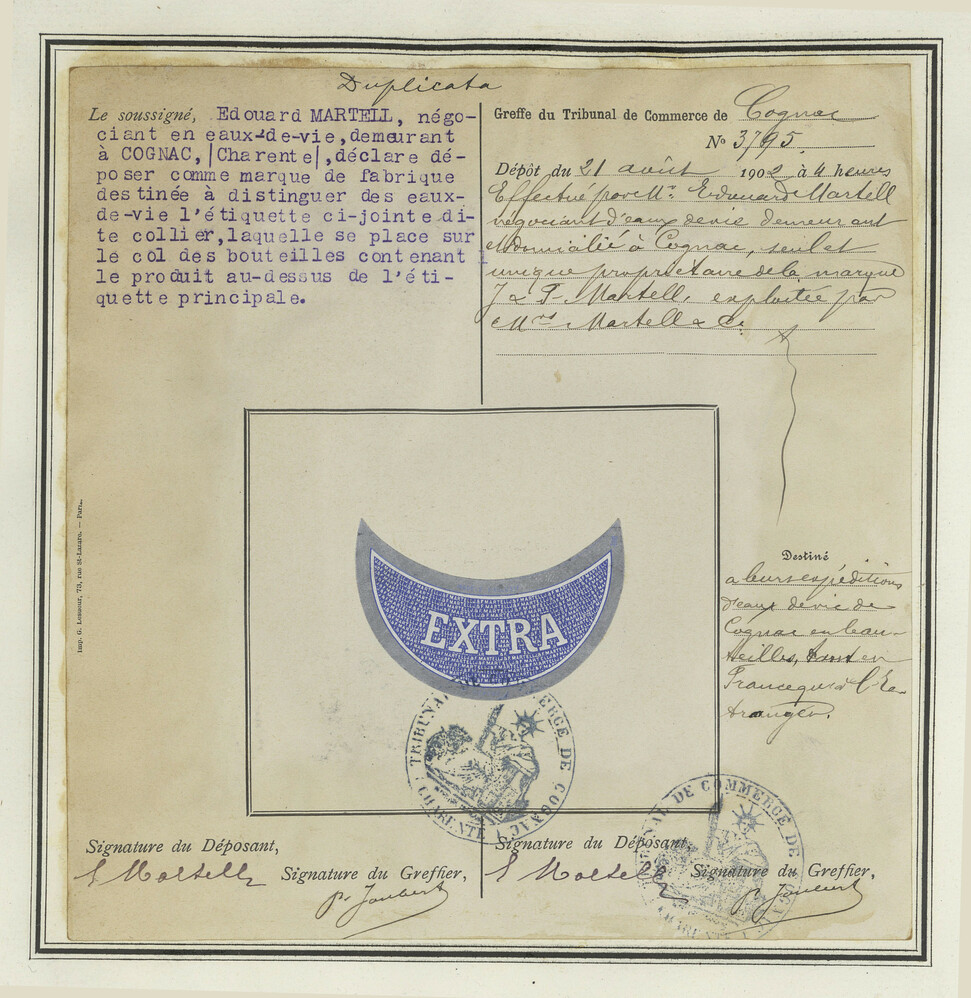 Duplicata
Le soussigné, Edouard MARTELL, négo-
ciant en eaux-de-vie, demeurant
à COGNAC, |Charente|, déclare dé-
poser comme marque de fabrique
destinée à distinguer des eaux-
de-vie l'étiquette ci-jointe di-
te collier, laquelle se place sur
le col des bouteilles contenant
le produit au-dessus de l'éti-
quette principale.
Greffe du Tribunal de Commerce de Cognac
No 3795.
Dépôt du 21 août 1902 à 4 heures
Effectué par Mr. Edouard Martell
négociant d'eaux de vie demeurant
et domicilié à Cognac, seul et
unique propriétaire de la marque
J & F. Martell, exploitée par
Mrs Martell & Co.
Imp. G. Lesueur, 73, rue St-Lazare. — Paris.
EXTRA
Destiné
a leurs expéditions
d'eaux de vie de
Cognac en bou-
teilles, tant en
France qu'à l'é-
tranger.
TRIBUNAL DE COMMERCE DE COGNAC
CHARENTE
TRIBUNAL DE COMMERCE DE COGNAC
CHARENTE
Signature du Déposant,
E Martell
Signature du Greffier,
P. Joubert
Signature du Déposant,
E Martell
Signature du Greffier,
P. Joubert